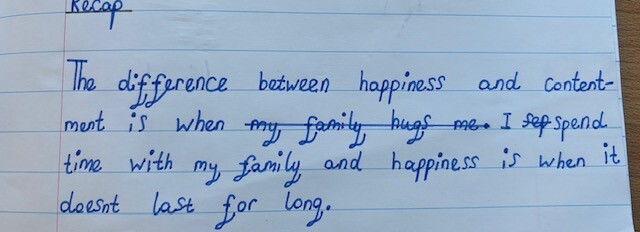 Recap
The difference between happiness and content-
ment is when my family hugs me. I sep spend
time with my family and happiness is when it
doesnt last for long.